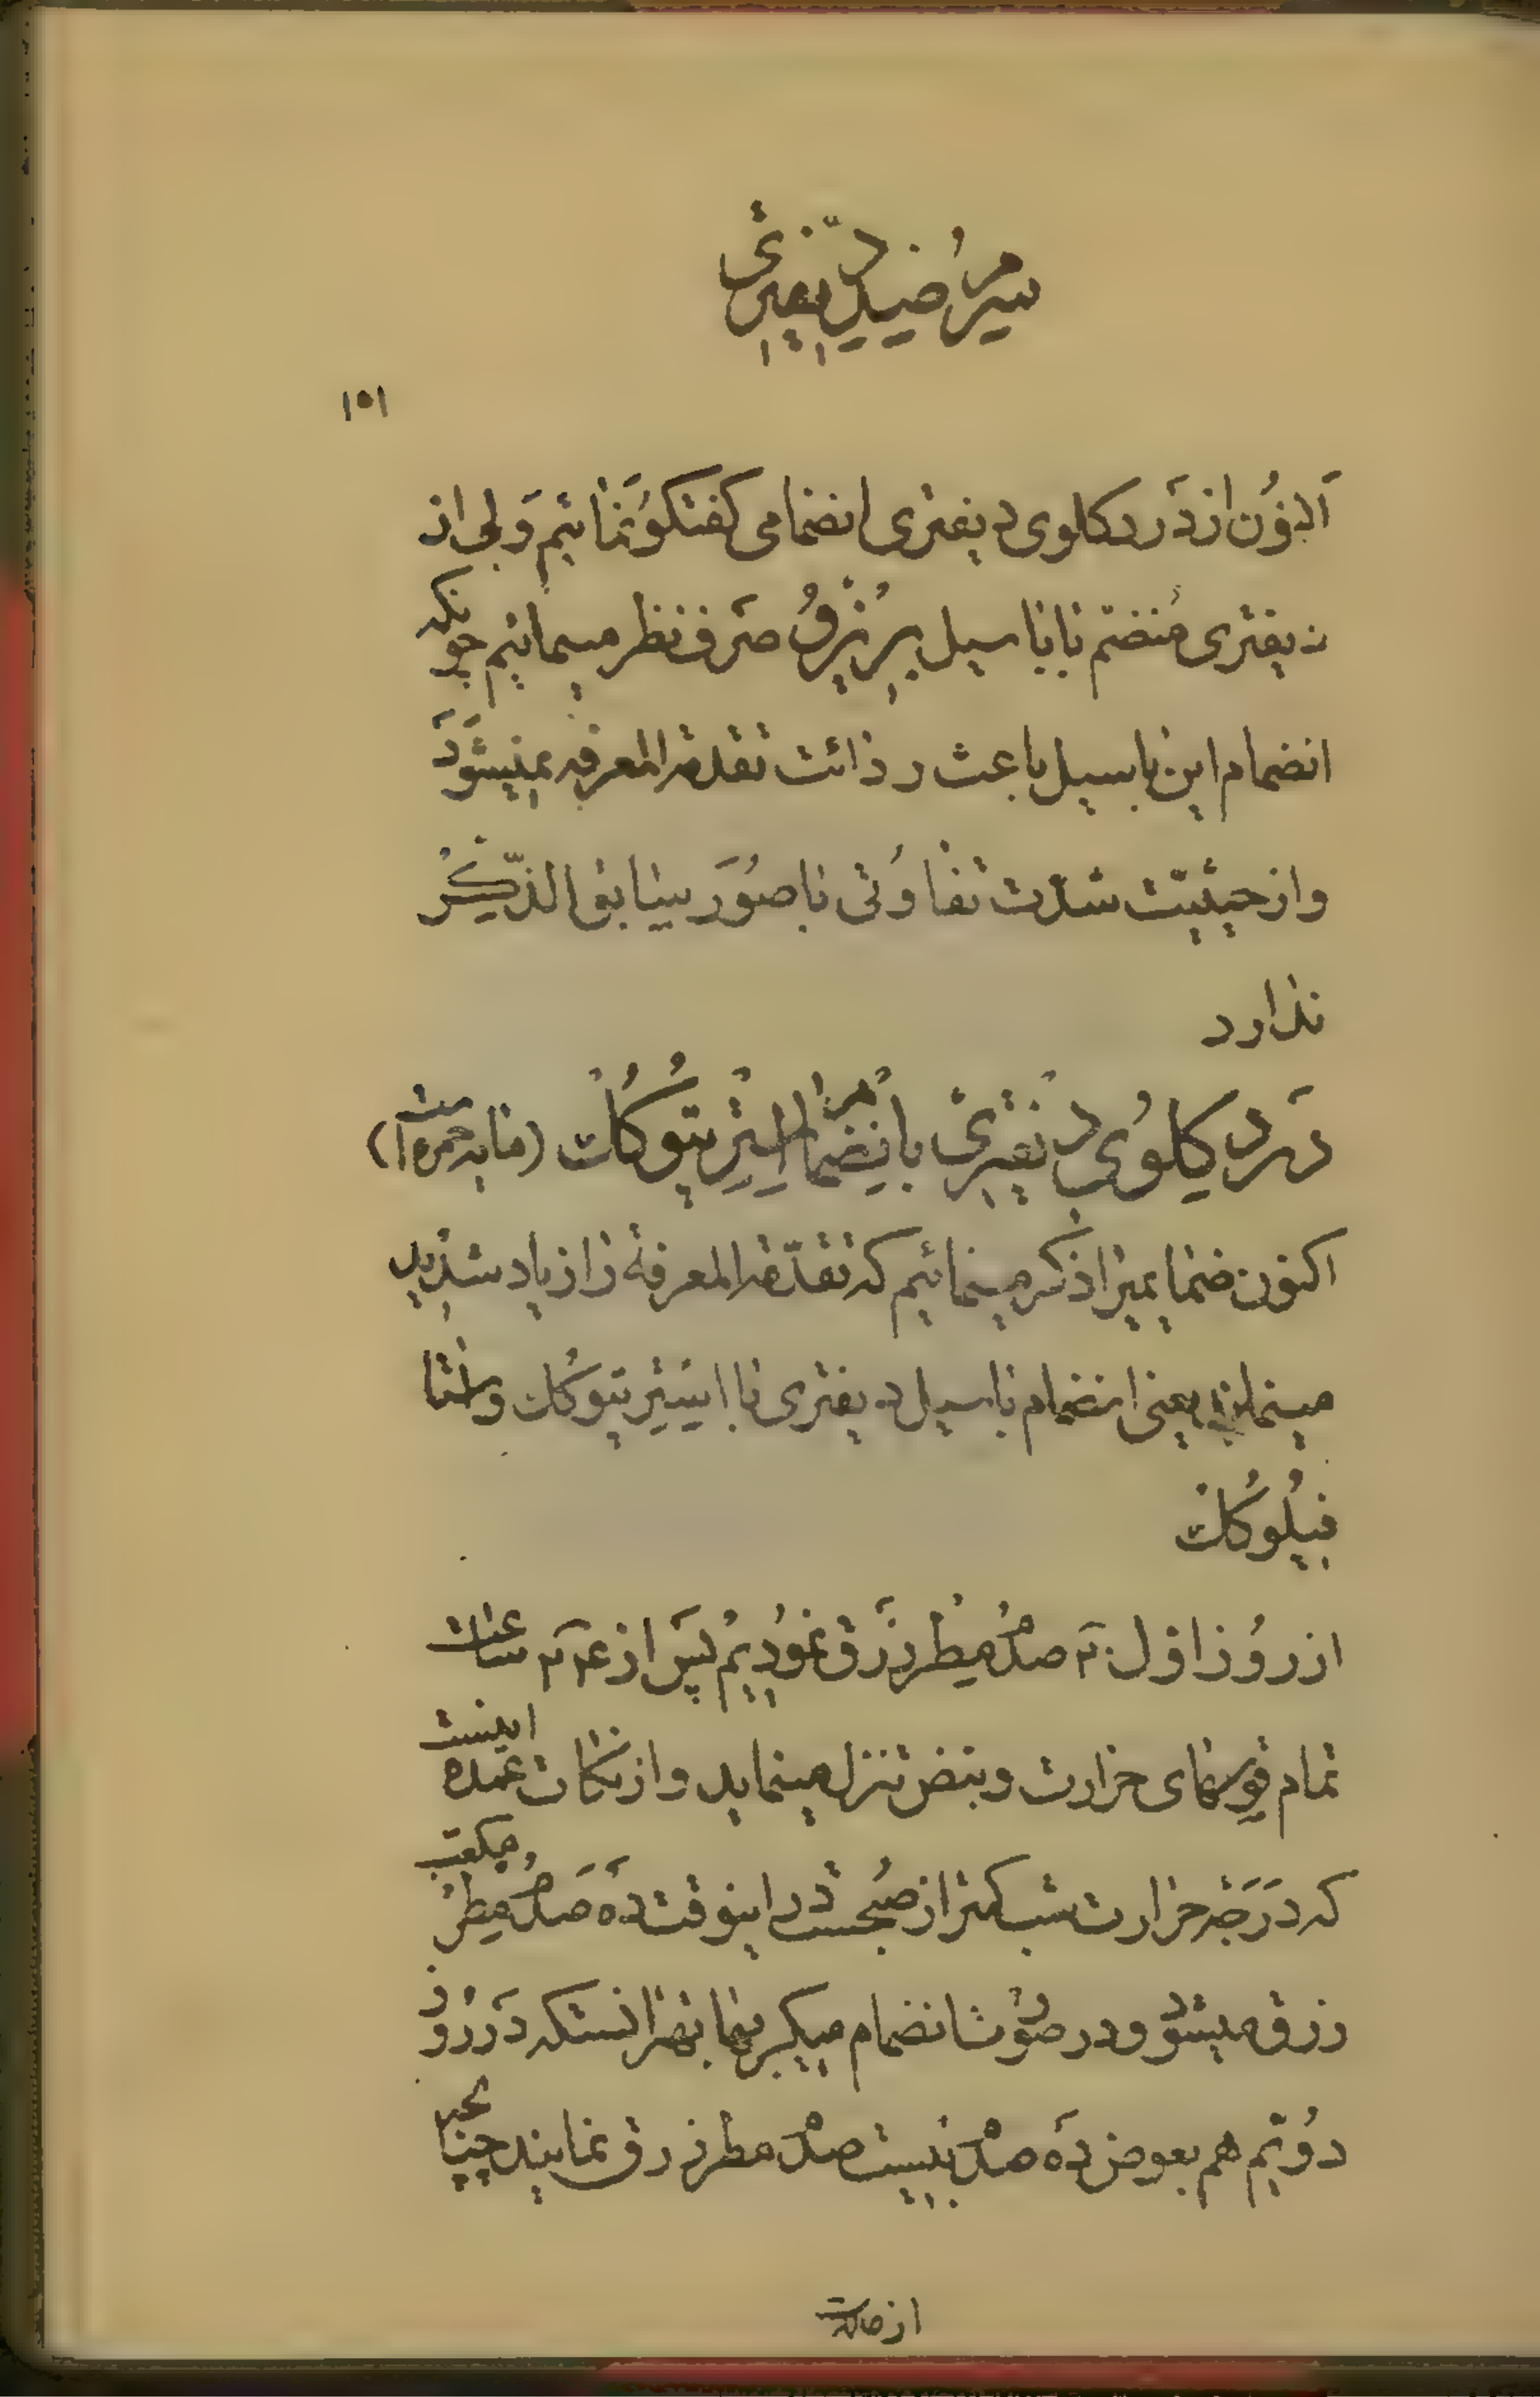 سرم ضد دیفتری
۱۵۱
اکنون از درد گلوی دیفتری انضمامی گفتگو نمائیم ولی از
دیفتری منضم با باسیل صرف نظر مینمائیم چونکه
انضمام این باسیل باعث ردائت تقدمة المعرفه نمیشود
و از حیثیت شدت تفاوتی با صور سابق الذکر
ندارد
درد گلوی دیفتری با انضمام استرپتوکک (مایه حمره است)
اکنون ضمایمیرا ذکر مینمائیم که تقدمة المعرفة را زیاد شدید
مینمایند یعنی انضمام باسیل دیفتری با استرپتوکک و استا
فیلوکک
از روز اول ۲۰ صدم میطر زرق نمودیم پس از ۲۴ ساعت
تمام قوسهای حرارت و نبض تنزل مینماید و از نکات عمده اینست
که درجه حرارت شب کمتر از صبحست در اینوقت ده صدم میطر مکعب
زرق میشود و در صورت انضمام میکربها بهتر انستکه در روز
دویم هم بعوض ده صدم بیست صدم مطر زرق نمایند چنانچه
از حالت